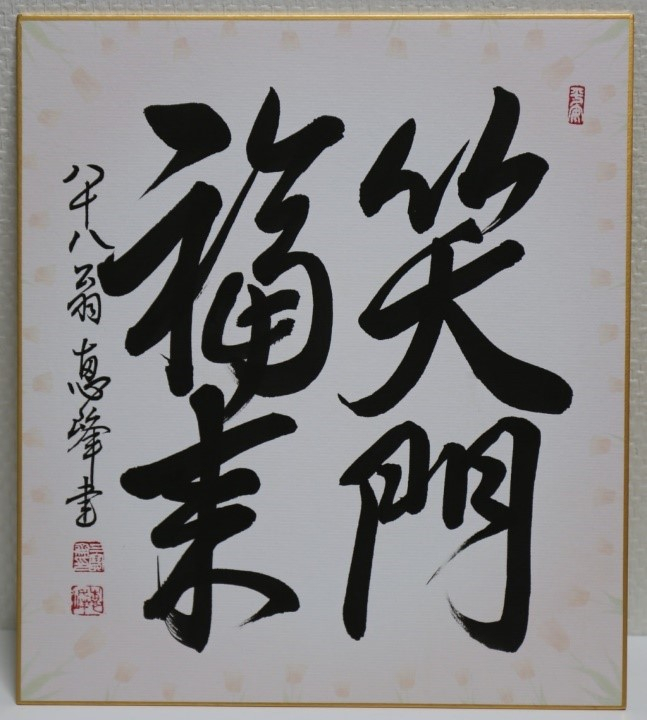 笑門
福来
八十八翁恵峰書